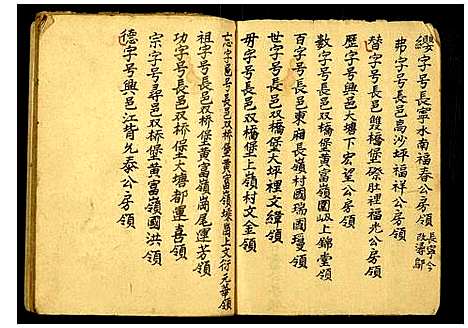 纓字号長寧水南福春公房領長寧今改潯鄔
弗字号長邑嵩沙坪福祥公房領
替字号長邑雙橋堡磜肚裡福光公房領
歷字号興邑大塘下宏望公房領
數字号長邑双橋堡黄富嶺圍岌上錦堂領
百字号長邑東廂長嶺村國瑞國璦領
世字号長邑双橋堡大坪裡文緯領
毋字号長邑双橋堡上嶺村文金領
忘字号長邑双桥堡黄富嶺塅崗上文衍元華領
祖字号長邑双桥堡黄富嶺崗尾運芳領
功字号長邑双桥堡大塘都運喜領
宗字号尋邑双桥堡黄富嶺國洪領
德字号興邑江背允泰公房領